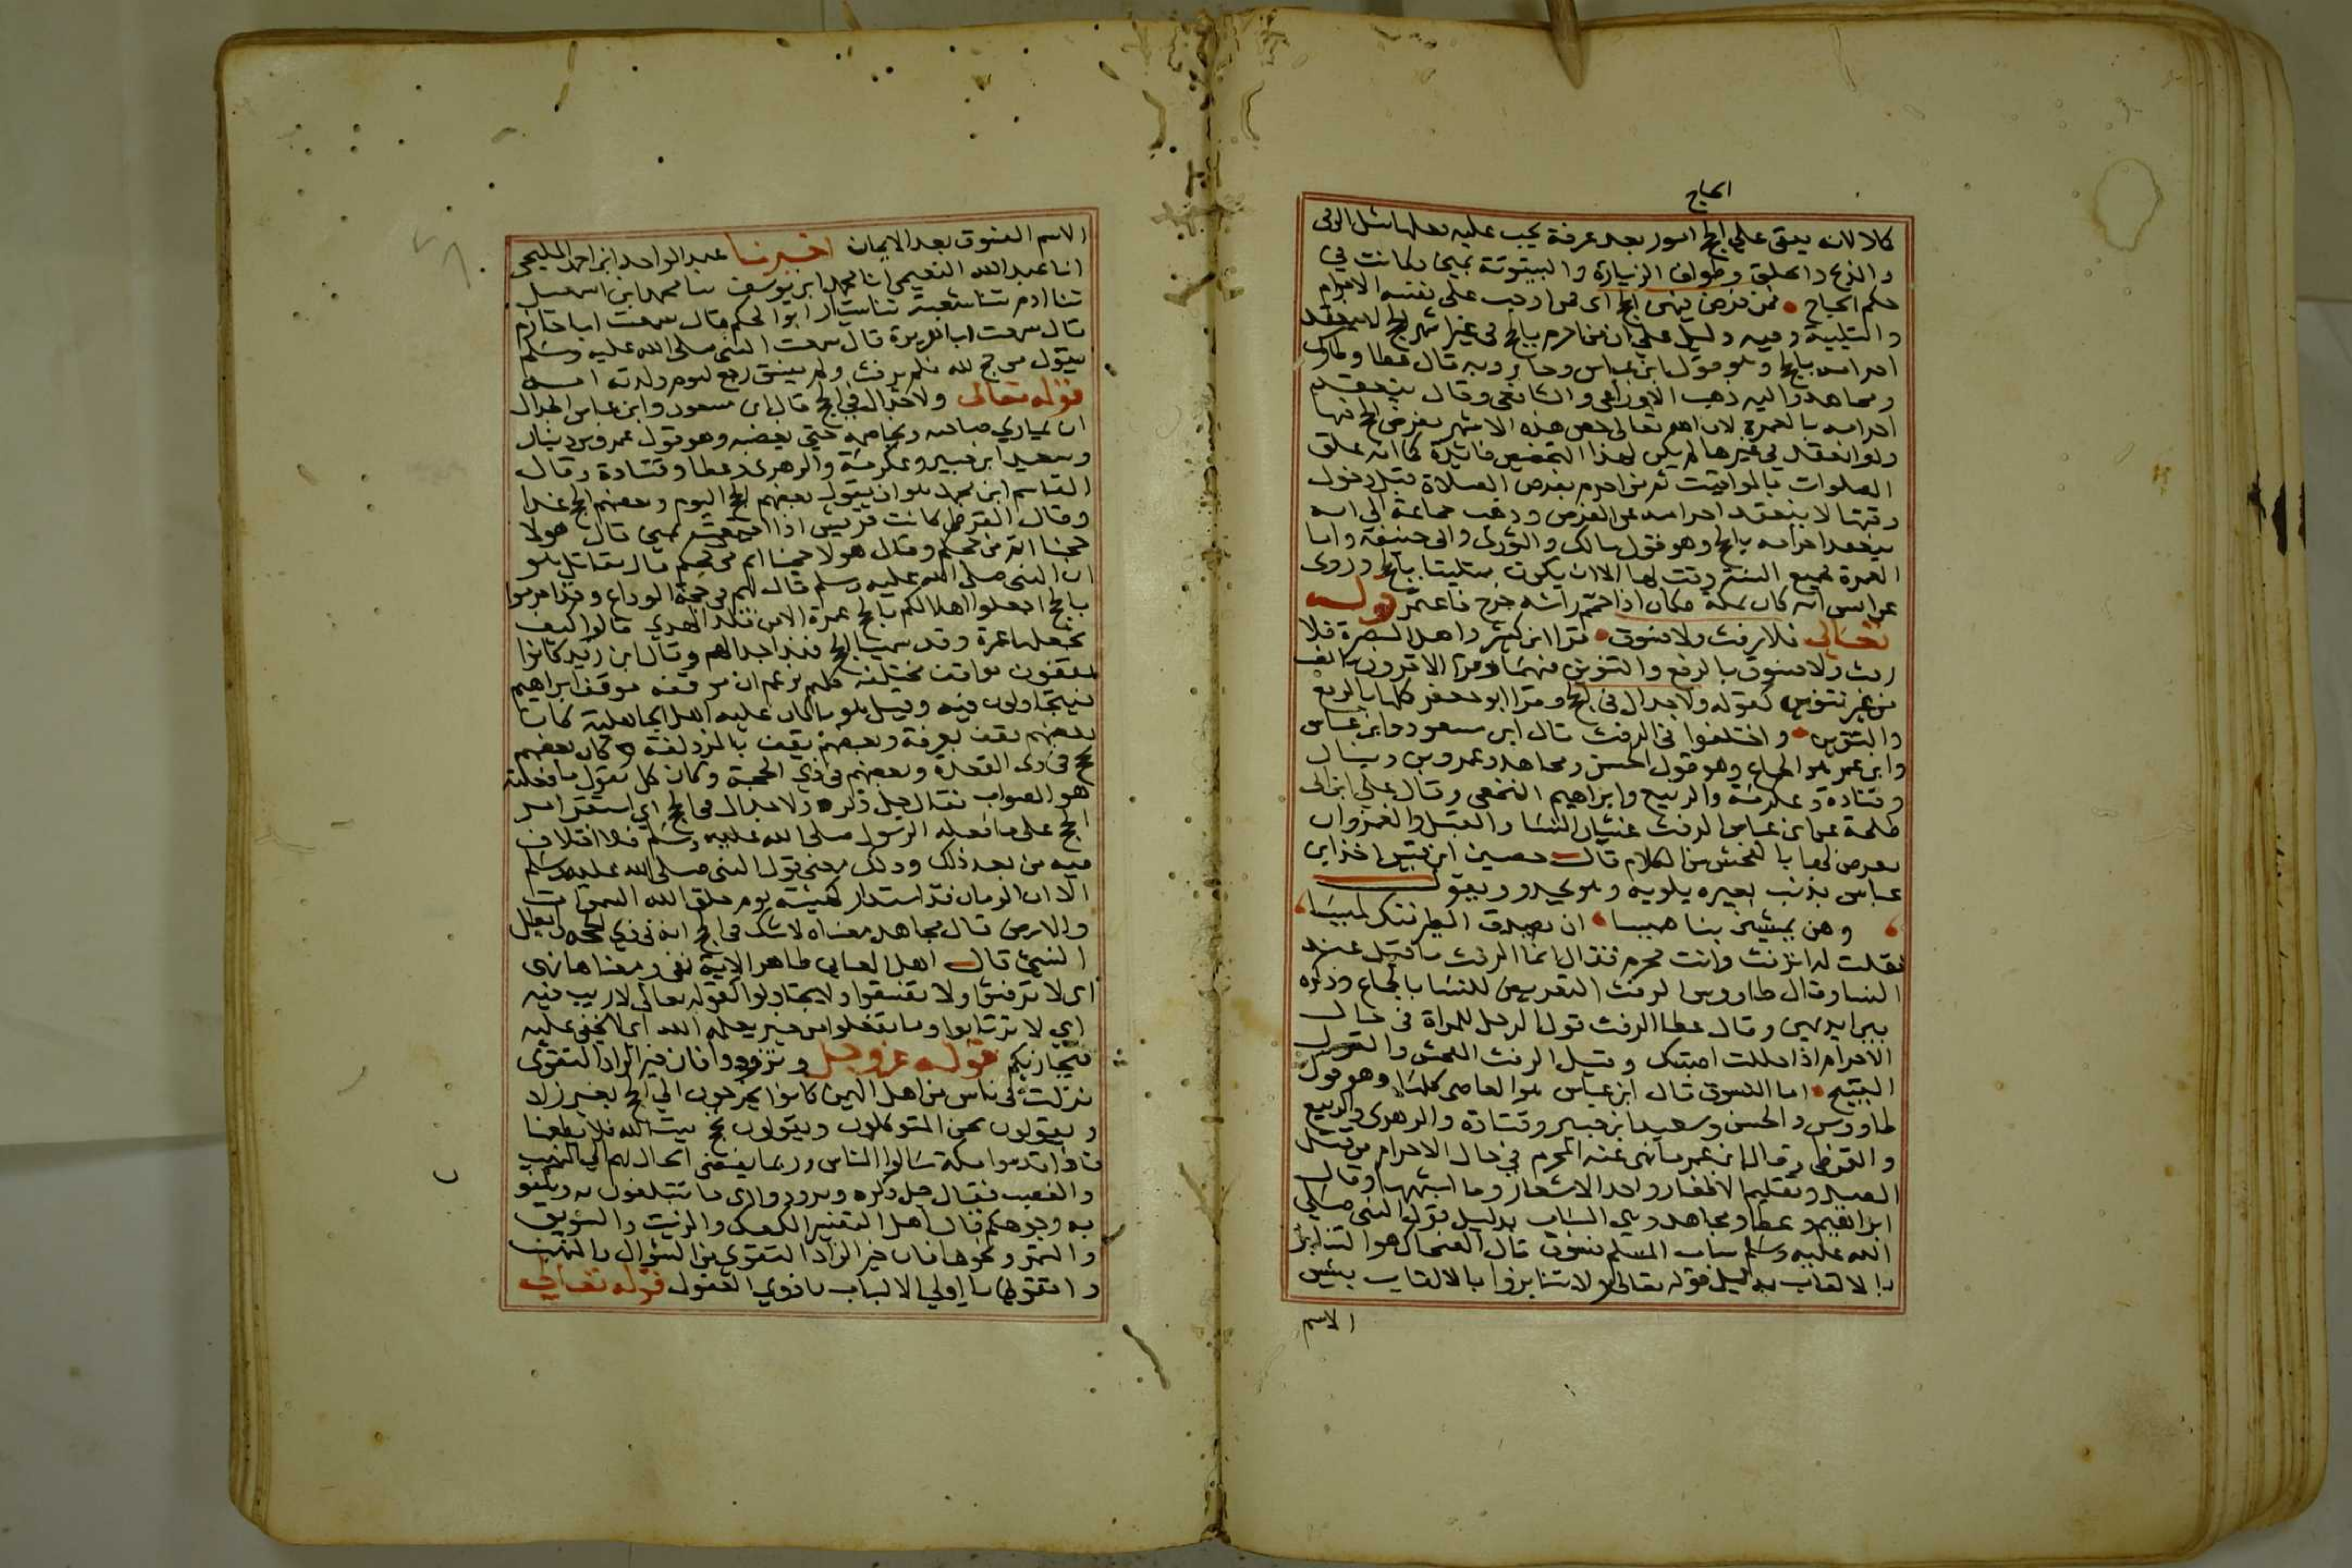 الحاج
كالا لانه يبقى على الحج امور بعد عرفة يجب عليه فعلها مثل الرمى
والذبح والحلق وطواف الزيارة والبيتوتة بمنى فكانت في
حكم الحجاج فمن فرض فيهن الحج اى فمن اوجب على نفسه الاحرام
والتلبية وفيه دليل على ان من احرم بالحج فى غير اشهر الحج لا ينعقد
احرامه بالحج وهو قول ابن عباس وجابر وبه قال عطا وطاوس
ومجاهد واليه ذهب الاوزاعى والشافعى وقال ينعقد
احرامه بالعمرة لان الله تعالى خص هذه الاشهر بفرض الحج فيها
ولو انعقد في غيرها لم يكن لهذا التخصيص فائدة كما انه علق
الصلوات بالمواقيت ثم من احرم بفرض الصلاة قبل دخول
وقتها لا ينعقد احرامه عن الفرض وذهب جماعة الى انه
ينعقد احرامه بالحج وهو قول مالك والثورى وابى حنيفة واما
العمرة فجميع السنة وقت لها الا ان يكون متلبسا بالحج وروى
عن انس انه كان بمكة فكان اذا حمم راسه خرج فاعتمر قوله
تعالى فلا رفث ولا فسوق قرا ابن كثير واهل البصرة فلا
رفث ولا فسوق بالرفع والتنوين فيهما وقرا الاخرون بالنصب
من غير تنوين كقوله ولا جدال فى الحج وقرا ابو جعفر كلها بالرفع
والتنوين واختلفوا فى الرفث قال ابن مسعود وابن عباس
وابن عمر هو الجماع وهو قول الحسن ومجاهد وعمرو بن دينار
وقتادة وعكرمة والربيع وابراهيم النخعى وقال على ابن ابى
طلحة عن ابن عباس الرفث غشيان النسا والقبل والغمز وان
يعرض لها بالفحش من الكلام قال حصين ابن قيس اخذ ابن
عباس بذنب بعيره يلويه وهو يحدو ويقول
وهن يمشين بنا هميسا ان يصدق الطير ننك لميسا
فقلت له اترفث وانت محرم فقال انما الرفث ما قيل عند
النسا وقال طاووس الرفث التعريض للنسا بالجماع وذكره
بين ايديهن وقال عطا الرفث قول الرجل للمراة فى حال
الاحرام اذا حللت اصبتك وقيل الرفث الفحش والقول
القبيح اما الفسوق قال ابن عباس هو المعاصى كلها وهو قول
طاووس والحسن وسعيد ابن جبير وقتادة والزهرى والربيع
والقرظى وقال ابن عمر ما نهى عنه المحرم في حال الاحرام من قتل
الصيد وتقليم الاظفار واخذ الاشعار وما اشبهها وقال
ابراهيم وعطا ومجاهد هى السباب بدليل قول النبى صلى
الله عليه وسلم سباب المسلم فسوق قال الضحاك هو التنابز
بالالقاب بدليل قوله تعالى ولا تنابزوا بالالقاب بئس
الاسم
الاسم الفسوق بعد الايمان اخبرنا عبد الواحد ابن احمد المليحى
انا عبد الله النعيمى انا محمد ابن يوسف ثنا محمد ابن اسمعيل
ثنا ادم ثنا شعبة ثنا سيار ابو الحكم قال سمعت ابا حازم
قال سمعت ابا هريرة قال سمعت النبى صلى الله عليه وسلم
يقول من حج لله فلم يرفث ولم يفسق رجع كيوم ولدته امه
قوله تعالى ولا جدال في الحج قال ابن مسعود وابن عباس الجدال
ان يمارى صاحبه ويخاصمه حتى يغضبه وهو قول عمرو بن دينار
وسعيد ابن جبير وعكرمة والزهرى وعطا وقتادة وقال
القاسم ابن محمد هو ان يقول بعضهم الحج اليوم وبعضهم الحج غدا
وقال القرظى كانت قريش اذا اجتمعت بمنى قال هولا
حجنا اتم من حجكم وقال هولا حجنا اتم من حجكم قال مقاتل هو
ان النبى صلى الله عليه وسلم قال لهم فى حجة الوداع وقد احرموا
بالحج اجعلوا اهلالكم بالحج عمرة الا من قلد الهدى قالوا كيف
نجعلها عمرة وقد سمينا الحج فهذا جدالهم وقال ابن زيد كانوا
يقفون مواقف مختلفة كلهم يزعم ان موقفه موقف ابراهيم
فيتجادلون فيه وقيل هو ما كان عليه اهل الجاهلية كان
بعضهم يقف بعرفة وبعضهم يقف بالمزدلفة وكان بعضهم
يحج فى ذى القعدة وبعضهم فى ذى الحجة وكان كل يقول ما فعلته
هو الصواب فقال جل ذكره ولا جدال فى الحج اي استقر امر
الحج على ما فعله الرسول صلى الله عليه وسلم فلا اختلاف
فيه من بعد ذلك وذلك معنى قول النبى صلى الله عليه وسلم
الا ان الزمان قد استدار كهيئته يوم خلق الله السموات
والارض قال مجاهد معناه لا شك فى الحج انه فى ذي الحجة فابطل
النسئ قال اهل المعانى ظاهر الاية نفى ومعناها نهى
اى لا ترفثوا ولا تفسقوا ولا تجادلوا كقوله تعالى لا ريب فيه
اي لا ترتابوا وما تفعلوا من خير يعلمه الله اى لا يخفى عليه
فيجازيكم قوله عز وجل وتزودوا فان خير الزاد التقوى
نزلت فى ناس من اهل اليمن كانوا يخرجون الى الحج بغير زاد
ويقولون نحن المتوكلون ويقولون نحج بيت الله فلا يطعمنا
فاذا قدموا مكة سالوا الناس وربما يفضى الحال بهم الى النهب
والغصب فقال جل ذكره وتزودوا اى ما تتبلغون به وتكفوا
به وجوهكم قال اهل التفسير الكعك والزيت والسويق
والتمر ونحوها فان خير الزاد التقوى من السؤال والنهب
واتقون يا اولي الالباب يا ذوي العقول قوله تعالى